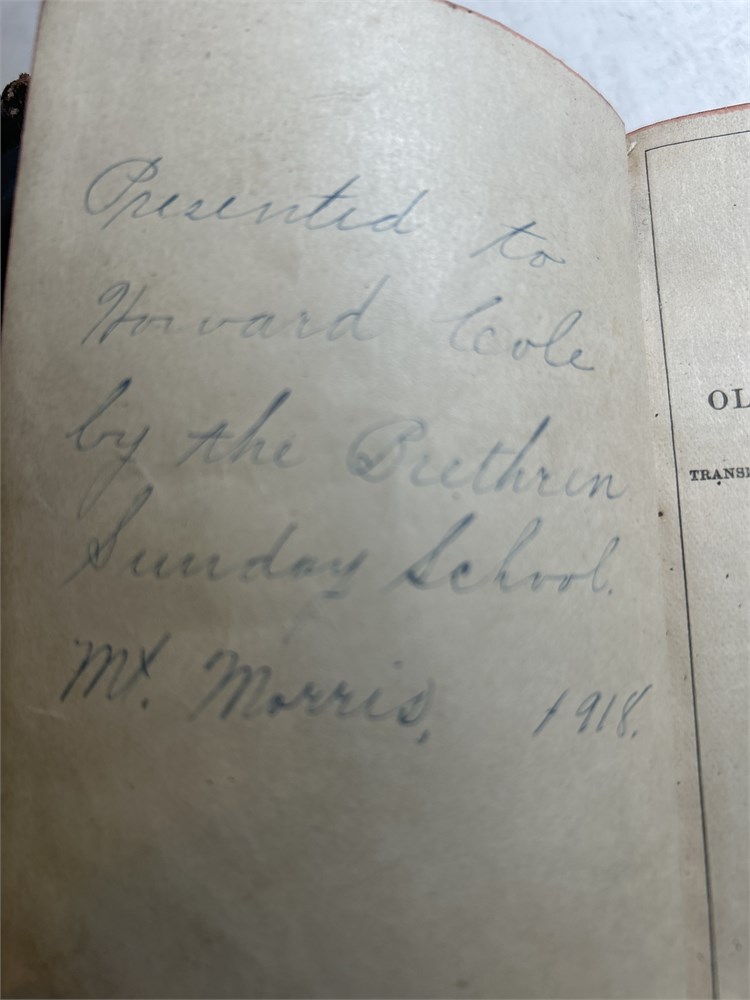 Presented to
Howard Cole
by the Brethren
Sunday School.
Mt. Morris, 1918.
OL
TRANSL